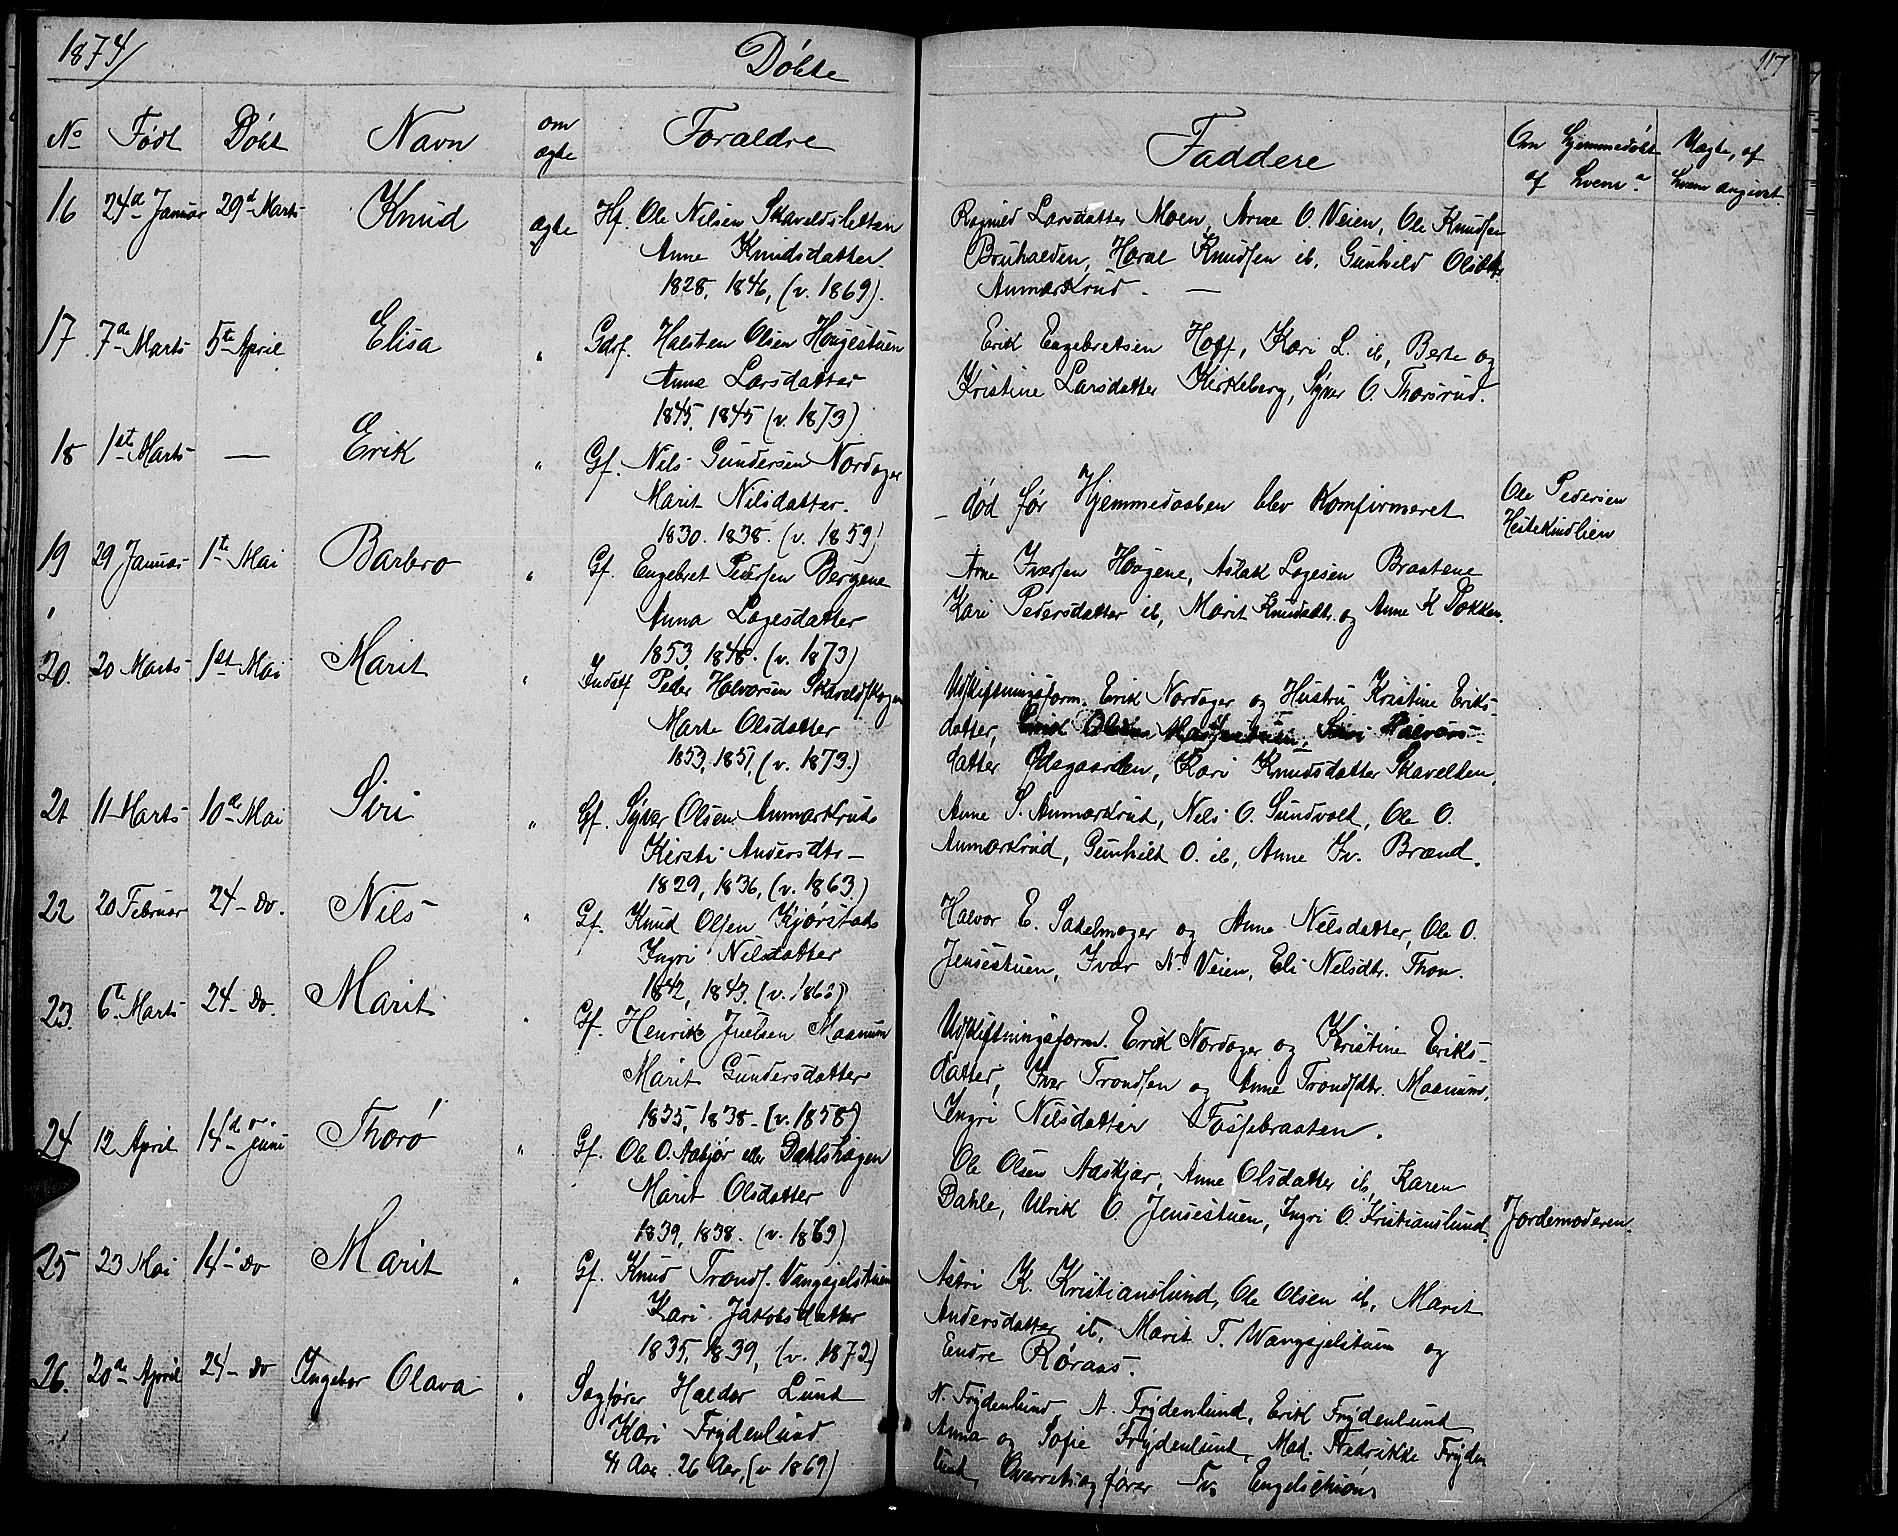 1874/
Döbte
117
No Född Döbt Navn om ægte Foraldre Faddere Om Hjemmedöbt af hvem? Vagte, af hvem angivet
16 24d Januar 29d Marts Knud ægte Hf. Ole Nilsen Skaveldsletten
Anne Knudsdatter.
1828, 1846, (v. 1869).
Ragnild Larsdatter Moen, Arne O. Veien, Ole Knudsen
Bruhalden, Haral Knudsen ib, Gunhild Olsdtr
Anmarkrud. —
17 7de Marts 5te April Elisa " Gdrf. Halsten Olsen Hougestuen
Anne Larsdatter
1845, 1845 (v. 1873)
Erik Engebretsen Hoff, Kari L. ib, Berte og
Kristine Larsdatter Kirkeberg, Syver O. Thorsrud.
18 1ste Marts — Erik " Gf. Nils Gundersen Nordager
Marit Nilsdatter.
1830. 1838. (v. 1859)
— död før Hjemmedaaben blev Komfirmeret
Ole Pedersen
Heitekindlien
19 29 Januar 1ste Mai Barbro " Gf. Engebret Pedersen Bergene
Anna Lagesdatter
1853, 1848. (v. 1873)
Arne Iversen Haugene, Aslak Lagesen Braatene
Kari Pedersdatter ib, Marit Knudsdtr. og Anne K Dokken.
20. 20 Marts 1ste Mai Marit " Indstf Peder Halvorsen Skaveldskogen
Marte Olsdatter
1853, 1851, (v. 1873.)
Udskiftningsform. Erik Nordager og Hustru Kristine Eriks-
datter, Siri Halvors-
datter Ødegaarden, Kari Knudsdatter Skavellen,
21 11 Marts 10de Mai Siri " Gf. Syver Olsen Anmarkrud
Kirsti Andersdtr —
1829, 1836, (v. 1863)
Anne S. Anmarkrud, Nels O. Sundvold, Ole O.
Anmarkrud, Gunhild O. ib, Anne Iv. Brænd.
22 20 Februar 24 — Do. Nils " Gf. Knud Olsen Kjørstad
Ingri Nilsdatter
1842, 1843. (v. 1863)
Halvor E. Sadelmager og Anne Nilsdatter, Ole O.
Jensestuen, Ivar N. Veien, Eli Nelsdtr. Thon.
23. 6te Marts 24 — Do. Marit " Gf. Henrik Juelsen Maanum
Marit Gundersdatter
1835, 1838 — (v. 1858)
Udskiftningsform. Erik Nordager og Kristine Eriks-
datter, Iver Trondsen og Anne Trondsdtr. Maanum,
Ingri Nilsdatter Fossebraaten.
24 12 April 14de Juni Thorö " Gf. Ole O. Aabjør eller Dahlshagen
Marit Olsdatter
1839, 1838. (v. 1863)
Ole Olsen Aaskjær, Anne Olsdatter ib, Karen
Dahle, Ulrik O. Jensestuen, Ingri O. Kristianslund.
Jordemoderen.
25 23 Mai 14 — Do Marit " Gf. Knud Tronds. Vangsjelstuen
Kari Jakobsdatter
1835, 1839, (v. 1872)
Astri K. Kristianslund, Ole Olsen ib, Marit
Andersdatter ib, Marit T. Wangsjelstuen og
Endre Röraas.
26. 20de April 24 — Do Ingebor Olava " Sagfører Haldor Lund
Kari Frydenlund
41 Aar. 26 Aar, (v. 1869)
N. Frydenlund A. Frydenlund, Erik Frydenlund
Anna og Sofie Frydenlund, Mad. Fredrikke Fryden
lund, Overretssagfører Fv. Engelschiön